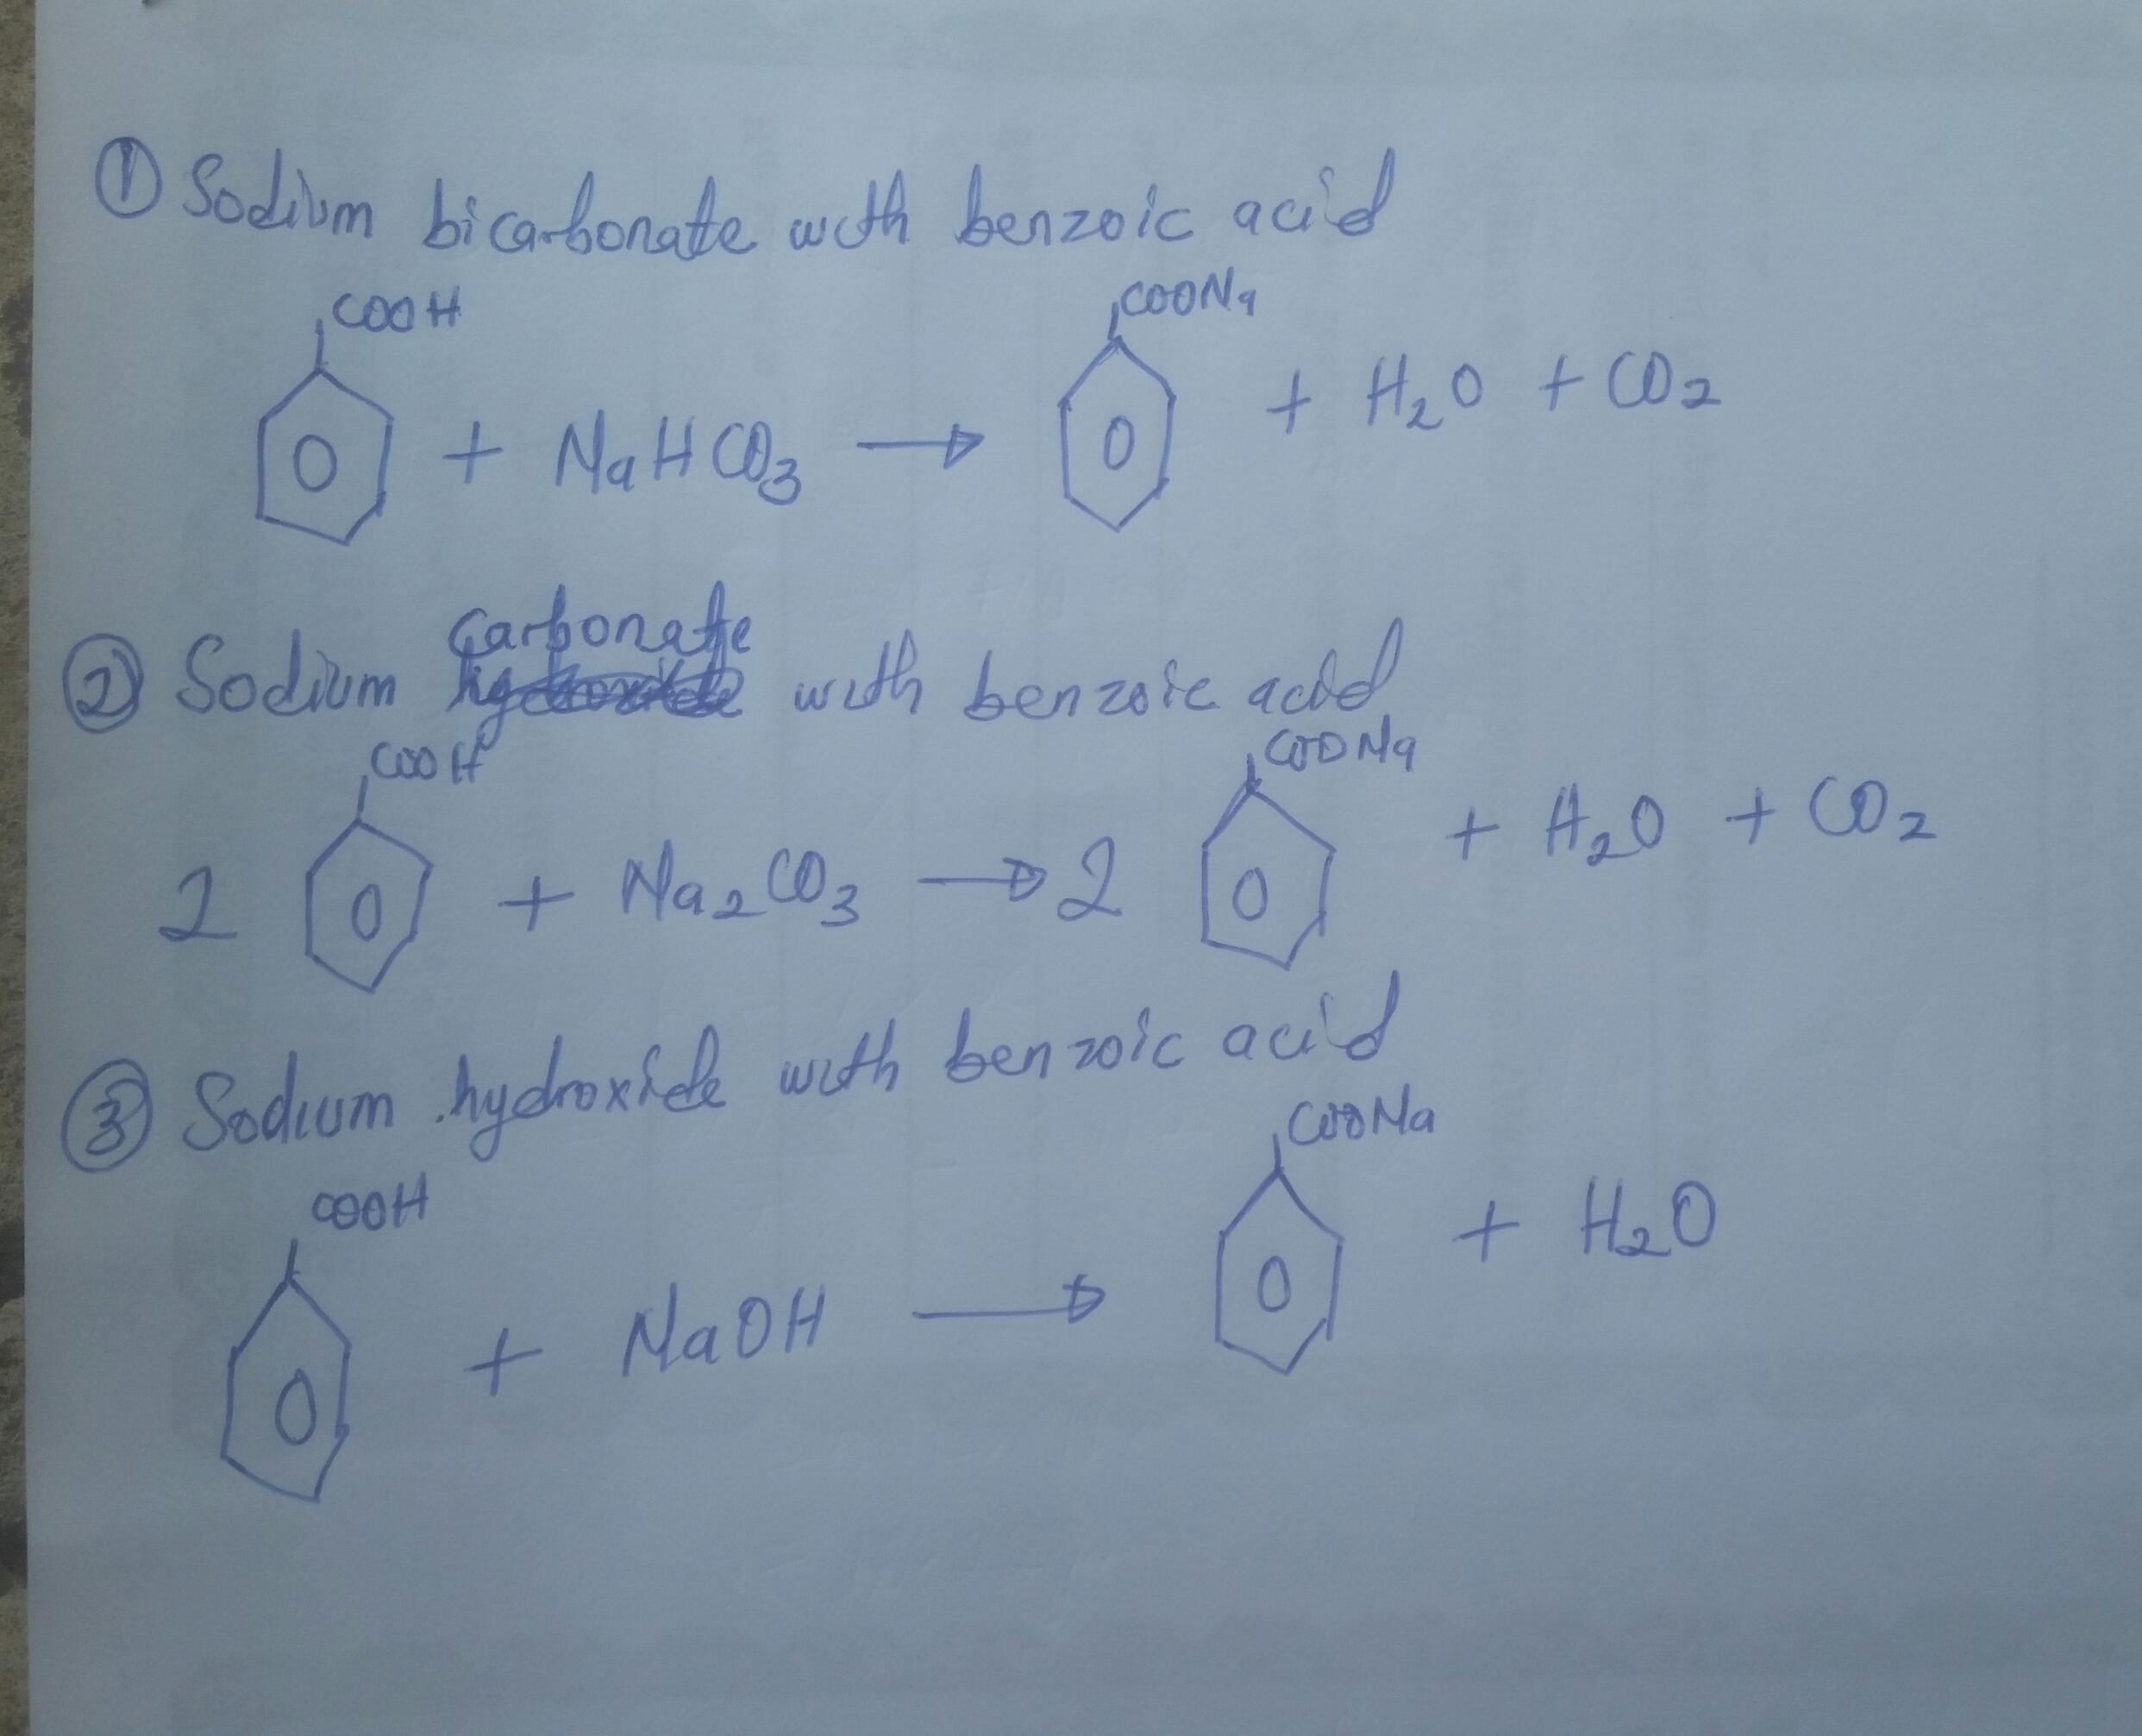 ① Sodium bicarbonate with benzoic acid
COOH COONa
+ NaHCO₃ → + H₂O + CO₂
② Sodium carbonate with benzoic acid
COOH COONa
2 + Na₂CO₃ → 2 + H₂O + CO₂
③ Sodium hydroxide with benzoic acid
COOH COONa
+ NaOH → + H₂O